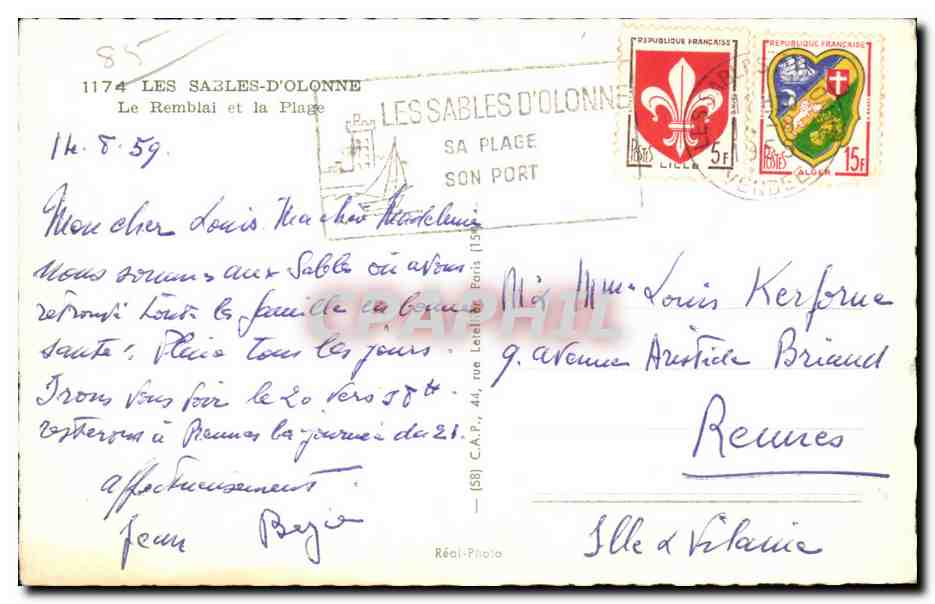 85
1174 LES SABLES-D'OLONNE
Le Remblai et la Plage
LES SABLES D'OLONNE
SA PLAGE
SON PORT
REPUBLIQUE FRANÇAISE
POSTES
5F
LILLE
REPUBLIQUE FRANÇAISE
POSTES
15F
ALGER
VENDEE
14.8.59.
Mon cher Louis. Ma chère Madeleine
Nous sommes aux Sables où avons
retrouvé toute la famille en bonne
santé. Pluie tous les jours.
Irons vous voir le 20 vers 18h
resterons à Rennes la journée du 21.
affectueusement.
Jean
Mr Mme Louis Kerforne
9. avenue Aristide Briand
Rennes
Ille & Vilaine
(58) C.A.P., 44, rue Letellier Paris (15e)
Réal-Photo
CPAPHIL